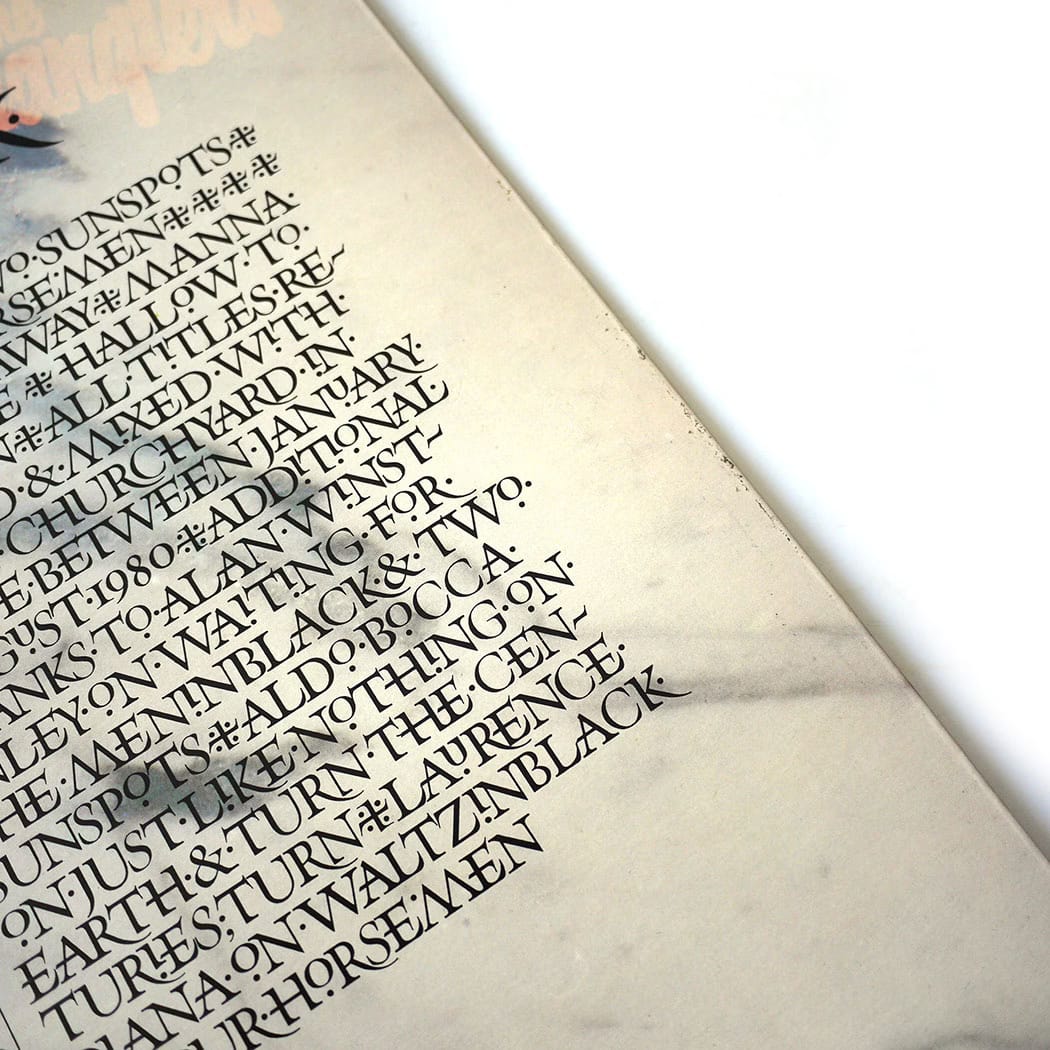 WO·SUNSPOTS⁜
RSEMEN⁜⁜⁜⁜
AWAY⁜MANNA·
E⁜HALLOW·TO·
N⁜ALL·TITLES·RE-
D·&·MIXED·WITH·
·CHURCHYARD·IN·
E·BETWEEN·JANUARY·
GUST·1980⁜ADDITIONAL·
ANKS·TO·ALAN·WINST-
NLEY·ON·WAITING·FOR·
HE·MENINBLACK·&·TWO·
SUNSPOTS⁜ALDO·BOCCA·
ON·JUST·LIKE·NOTHING·ON·
EARTH·&·TURN·THE·CEN-
TURIES;TURN⁜LAURENCE·
DIANA·ON·WALTZINBLACK·
UR·HORSEMEN